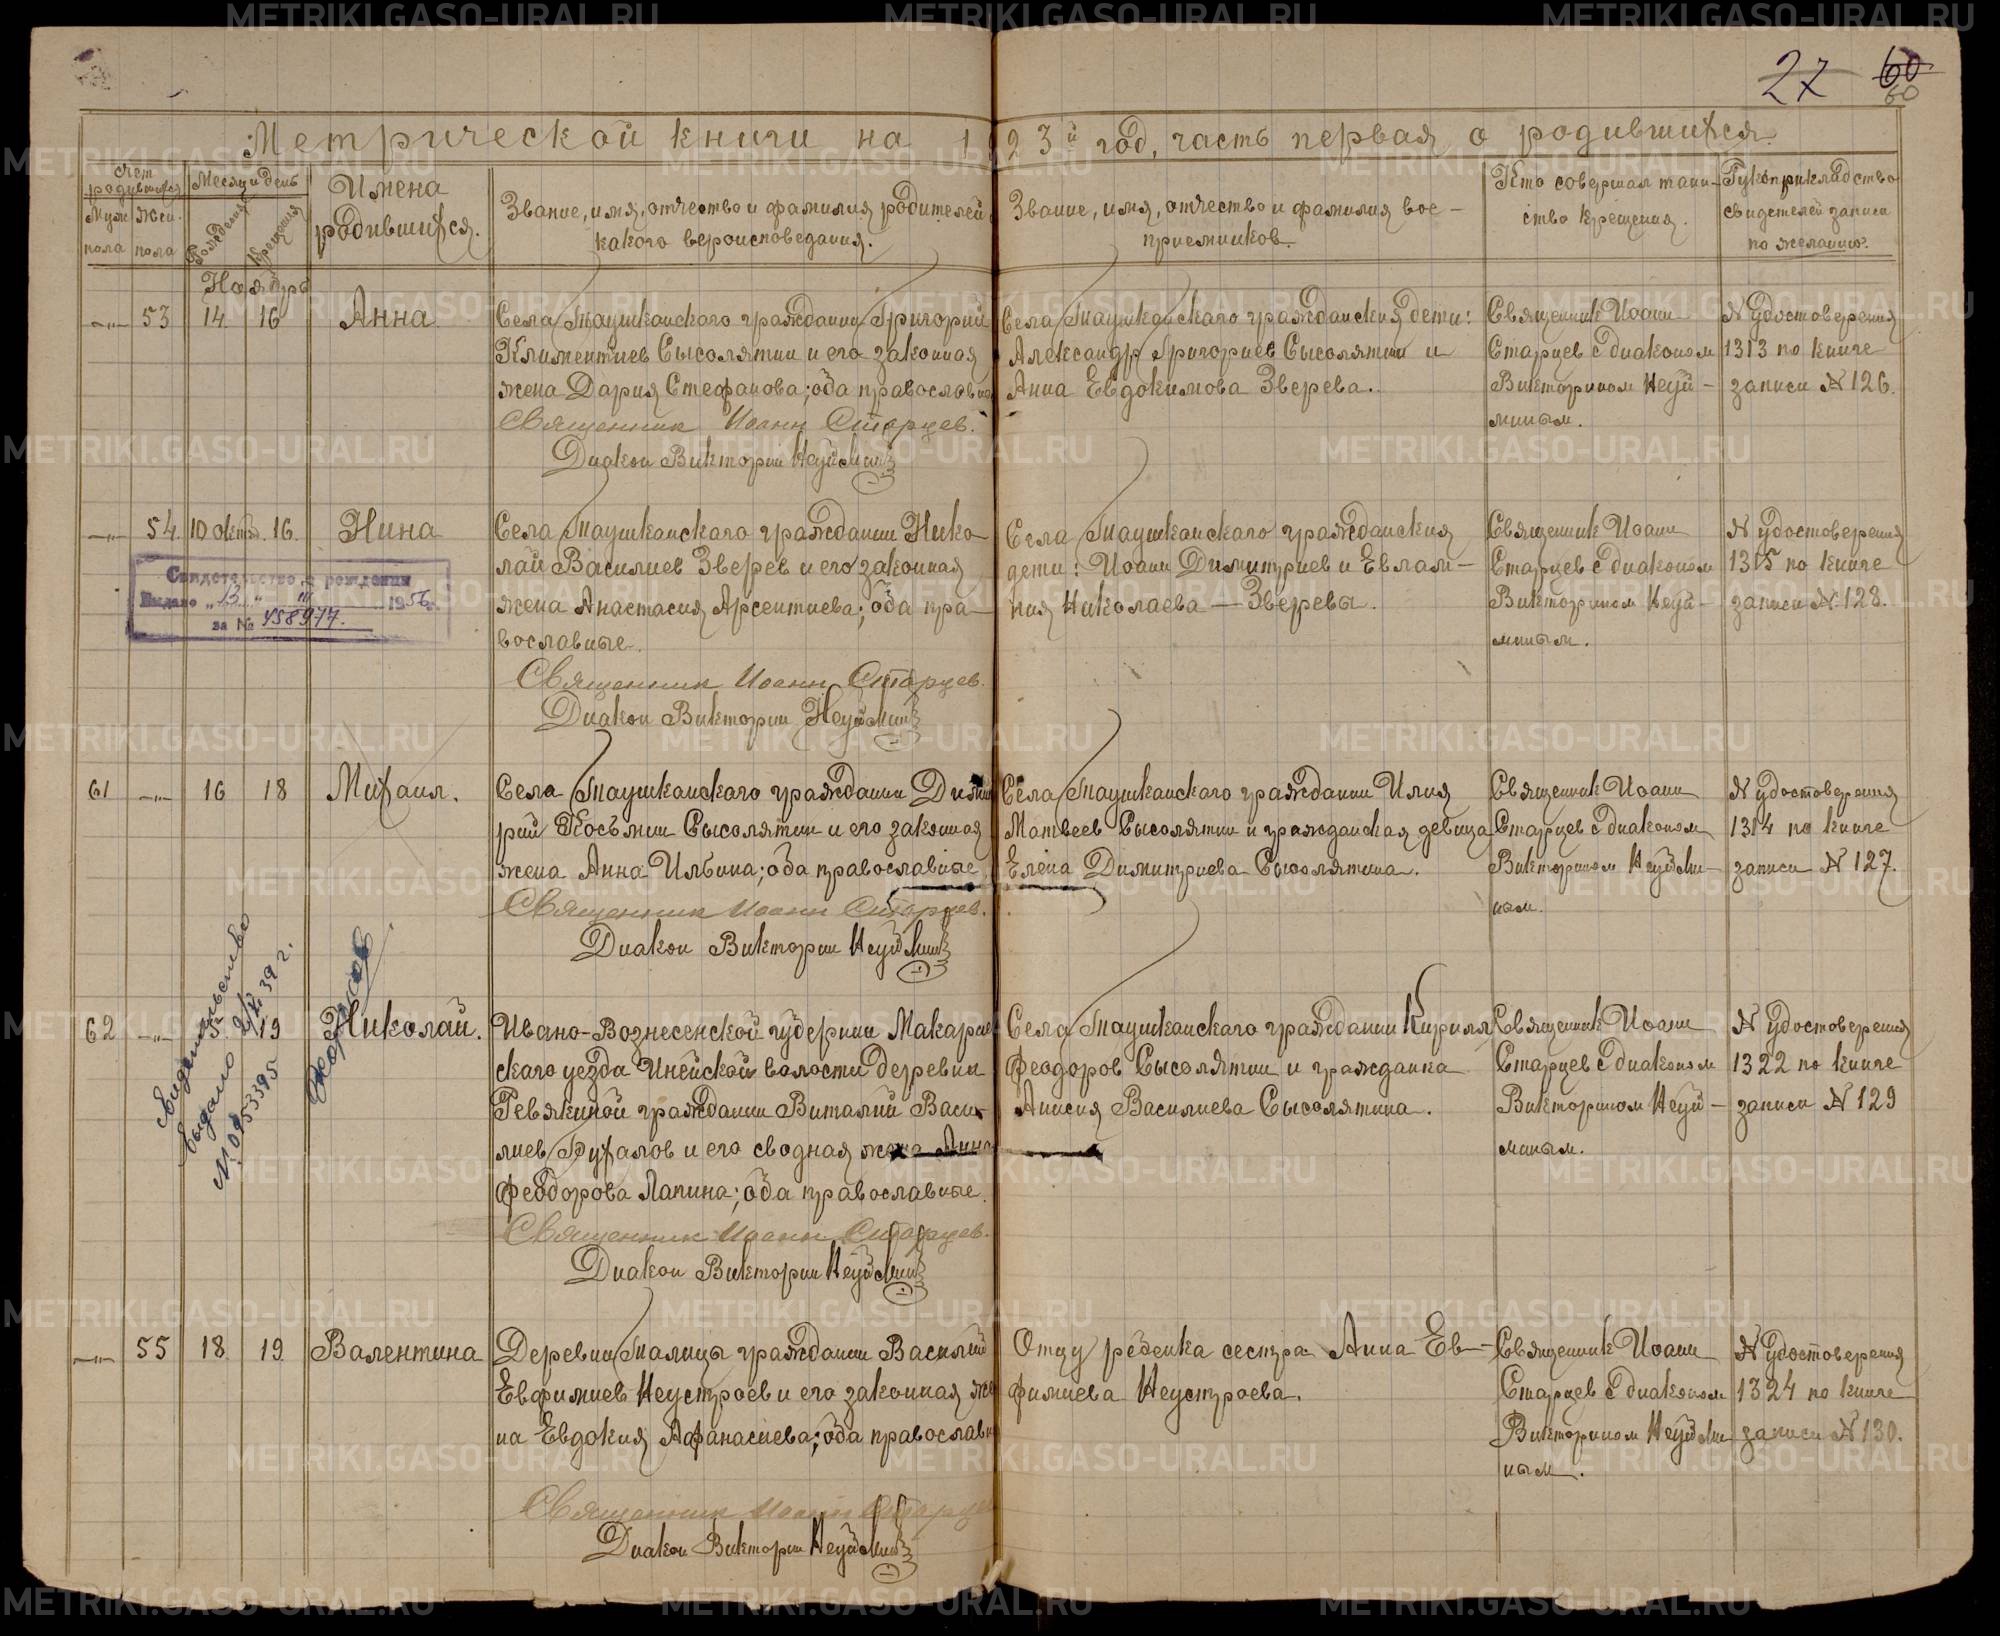 27 60
60
Метрической книги на 1923й год, часть первая о родившихся.
Счет родившихся
Муж. пола
Жен. пола
Месяц и день
Рождения
Крещения
Имена родившихся.
Звание, имя, отчество и фамилия родителей и какого вероисповедания.
Звание, имя, отчество и фамилия вос-
приемников.
Кто совершал таин-
ство крещения.
Рукоприкладство
свидетелей записи
по желанию.
Ноябрь
-"- 53 14 16 Анна
Села Таушканского гражданин Григорий
Климентиев Сысолятин и его законная
жена Дария Стефанова; оба православные
Священник Иоанн Старцев.
Диакон Викторин Неуймин
Села Таушканского гражданския дети:
Александр Григориев Сысолятин и
Анна Евдокимова Зверева.
Священник Иоанн
Старцев с диаконом
Викторином Неуй-
миным.
№ удостоверения
1313 по книге
записи № 126.
-"- 54. 10 октяб. 16. Нина
Свидетельство о рождении
Выдано "13" III 1956
за № 458977.
Села Таушканского гражданин Нико-
лай Василиев Зверев и его законная
жена Анастасия Арсентиева; оба пра-
вославные.
Священник Иоанн Старцев.
Диакон Викторин Неуймин
Села Таушканского гражданския
дети: Иоанн Димитриев и Евлам-
пия Николаева — Зверевы.
Священник Иоанн
Старцев с диаконом
Викторином Неуй-
миным.
№ удостоверения
1315 по книге
записи № 128.
61 -"- 16 18 Михаил.
Села Таушканского гражданин Димит
рий Косьмин Сысолятин и его законная
жена Анна Ильина; оба православные
Священник Иоанн Старцев.
Диакон Викторин Неуймин
Села Таушканского гражданин Илия
Матвеев Сысолятин и гражданская девица
Елена Димитриева Сысолятина.
Священник Иоанн
Старцев с диаконом
Викторином Неуйми-
ным.
№ удостоверения
1314 по книге
записи № 127.
62 -"- 5 19 Николай.
Свидетельство
выдано 2/X. 39 г.
№ 0953395
Ивано-Вознесенской губернии Макарьев
скаго уезда Иней­ской волости деревни
Ревякиной гражданин Виталий Васи-
лиев Руфалов и его сводная жена Анна
Феодорова Лапина; оба православные.
Священник Иоанн Старцев.
Диакон Викторин Неуймин
Села Таушканского гражданин Кирилл
Феодоров Сысолятин и гражданка
Анисия Василиева Сысолятина.
Священник Иоанн
Старцев с диаконом
Викторином Неуй-
миным.
№ удостоверения
1322 по книге
записи № 129
-"- 55 18 19 Валентина
Деревни Талицы гражданин Василий
Евфимиев Неустроев и его законная же
на Евдокия Афанасиева; оба православн
Священник Иоанн Старцев
Диакон Викторин Неуймин
Отцу ребенка сестра Анна Ев-
фимиева Неустроева.
Священник Иоанн
Старцев с диаконом
Викторином Неуйми
ным.
№ удостоверения
1324 по книге
записи № 130.
METRIKI.GASO-URAL.RU